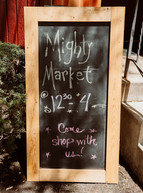 Mighty
Market
@ 12³⁰ - 4
Come
shop with
us!